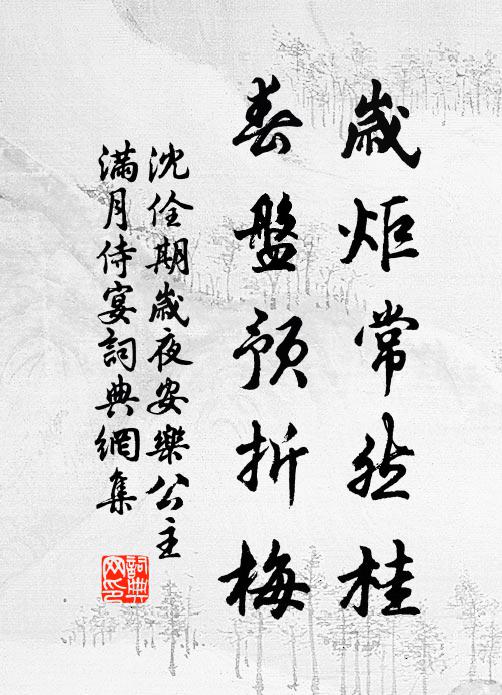 歲炬常然桂
春盤預折梅
沈佺期歲夜安樂公主
滿月侍宴詞典網集
詞典
网印